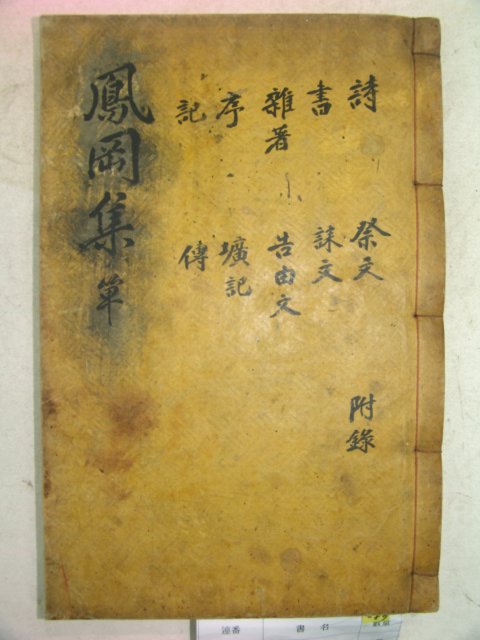 鳳岡集 單
詩 祭文 附錄
書 誄文
雜著 告由文
序 壙記
記 傳
連番 書名